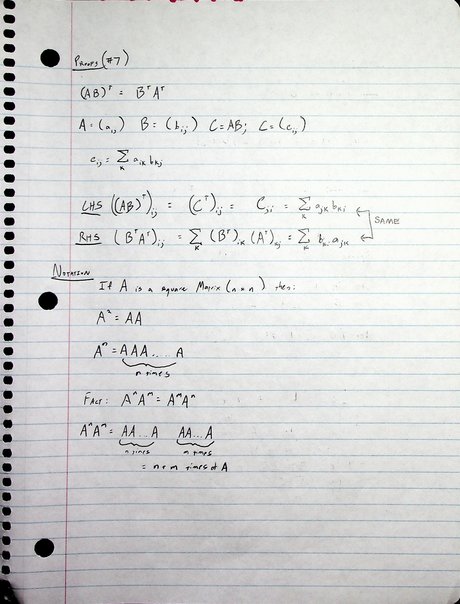 Proofs (#7)
(AB)ᵀ = BᵀAᵀ
A = (aᵢⱼ) B = (bᵢⱼ) C = AB; C = (cᵢⱼ)
cᵢⱼ = Σₖ aᵢₖ bₖⱼ
LHS ((AB)ᵀ)ᵢⱼ = (Cᵀ)ᵢⱼ = Cⱼᵢ = Σₖ aⱼₖ bₖᵢ
SAME
RHS (BᵀAᵀ)ᵢⱼ = Σₖ (Bᵀ)ᵢₖ (Aᵀ)ₖⱼ = Σₖ bₖᵢ aⱼₖ
Notation
If A is a square Matrix (n × n) then:
A² = AA
Aⁿ = AAA.....A
n times
Fact: AⁿAᵐ = AᵐAⁿ
AⁿAᵐ = AA...A AA...A
n times m times
= n + m times of A